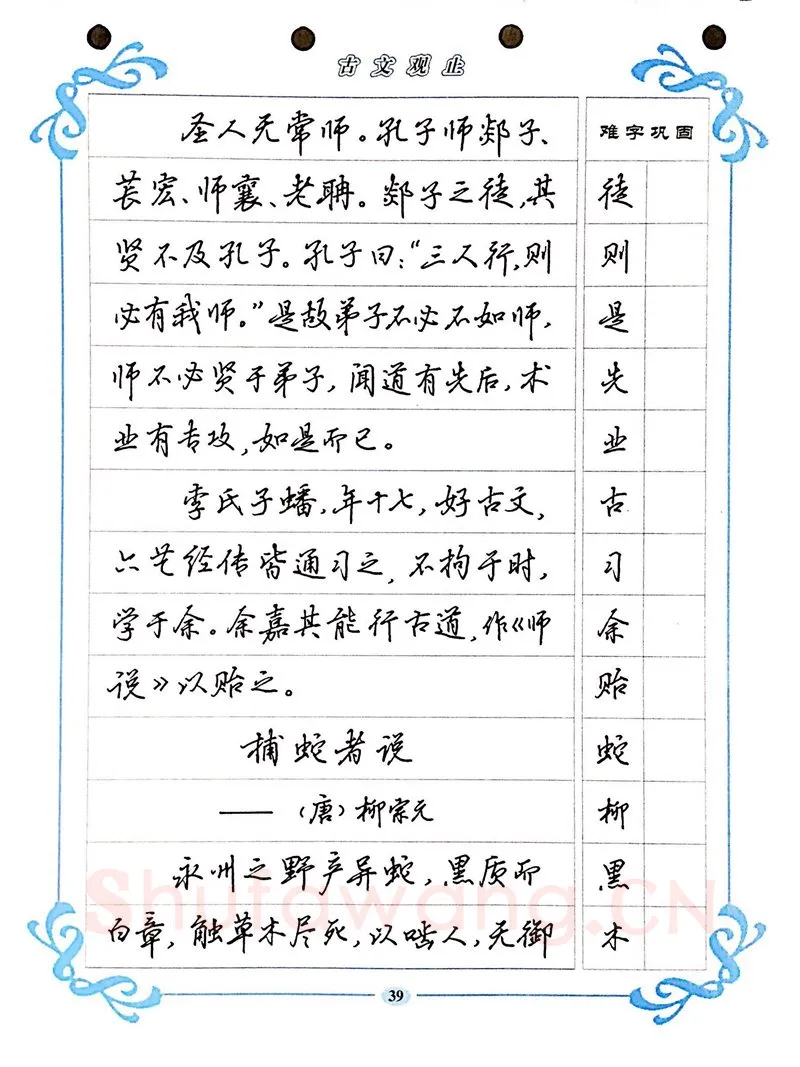 古文观止
圣人无常师。孔子师郯子、
苌宏、师襄、老聃。郯子之徒,其
贤不及孔子。孔子曰:“三人行,则
必有我师。”是故弟子不必不如师,
师不必贤于弟子,闻道有先后,术
业有专攻,如是而已。
李氏子蟠,年十七,好古文,
六艺经传皆通习之,不拘于时,
学于余。余嘉其能行古道,作《师
说》以贻之。
捕蛇者说
——(唐)柳宗元
永州之野产异蛇,黑质而
白章,触草木尽死,以啮人,无御
难字巩固
徒
则
是
先
业
古
习
余
贻
蛇
柳
黑
木
Shufawang.CN
39